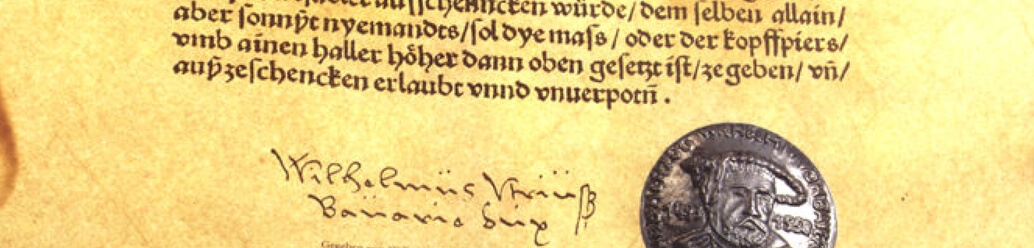 ausschenncken würde/ dem selben allain/
aber sonnst nyemandts/ sol dye mass / oder der kopffpiers/
vmb ainen haller höher dann oben gesetzt ist/ zegeben/ vn̄/
außzeschencken erlaubt vnnd vnuerpotn̄ .
Wilhelmüs
Bauarie Dux